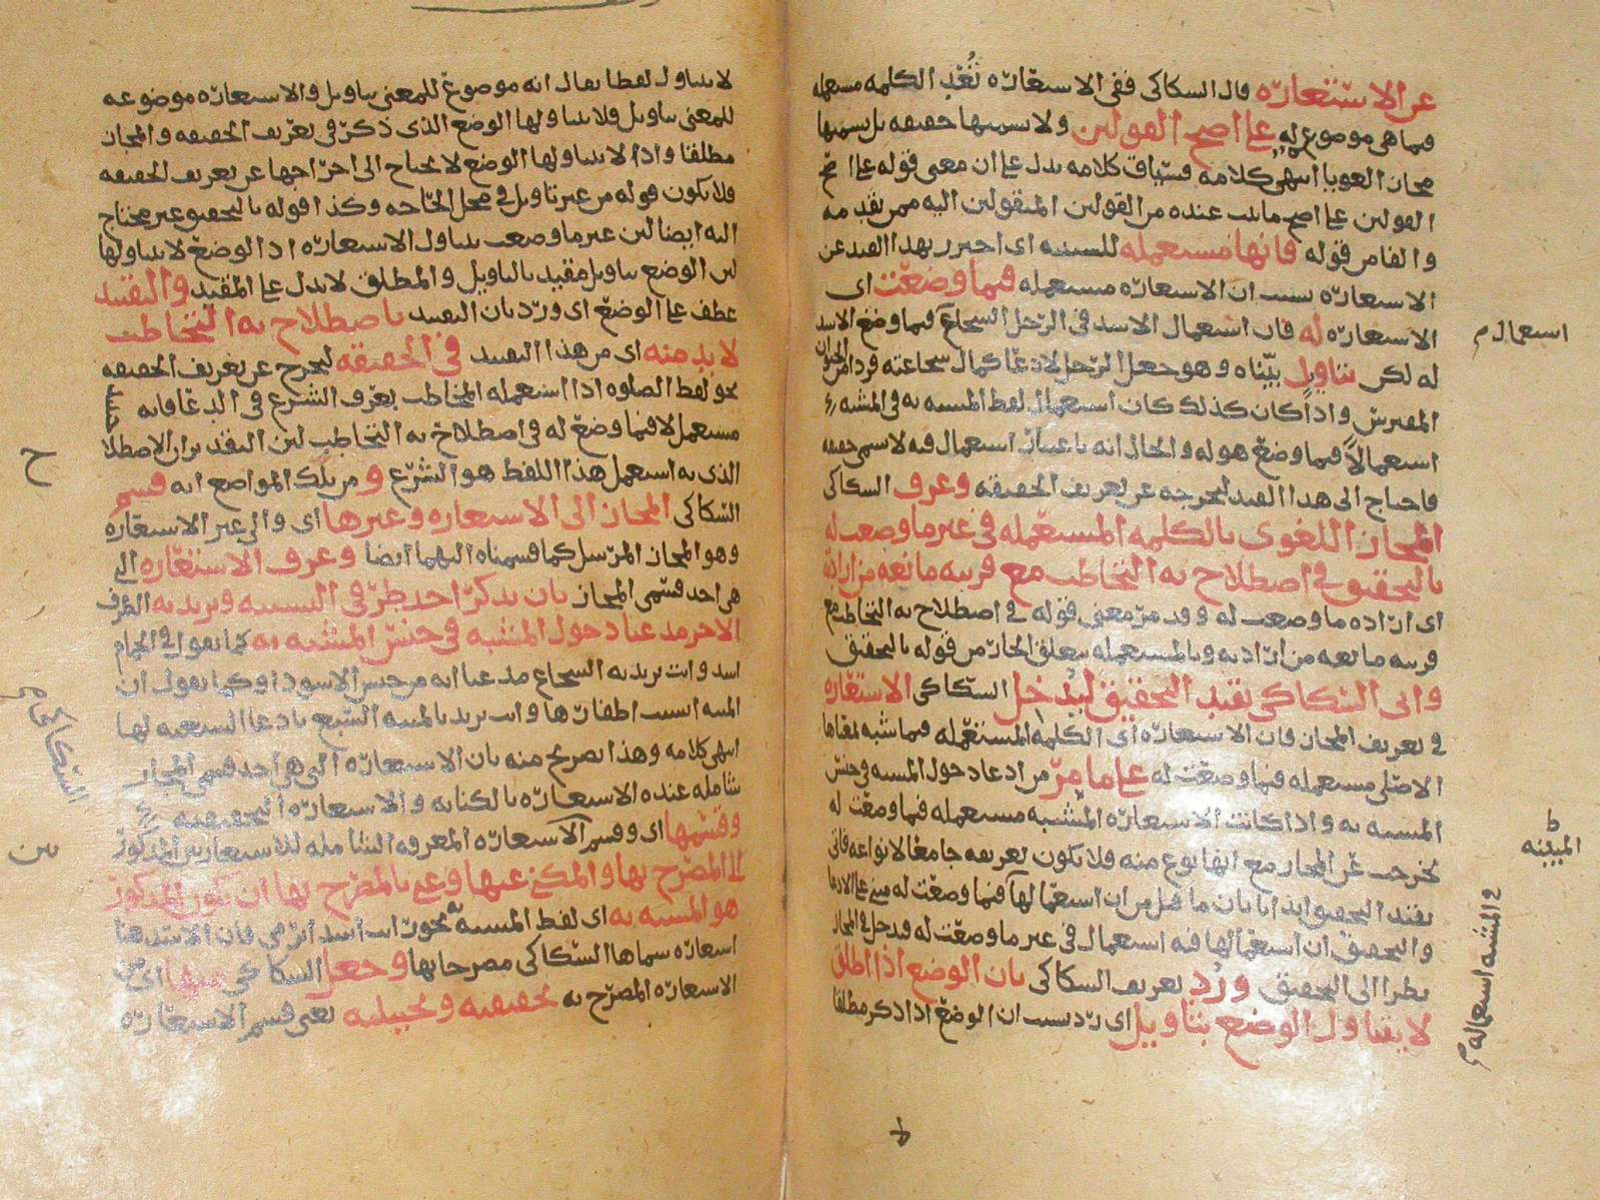 عن الاستعارة قال السكاكي ففي الاستعارة تُعَدّ الكلمة مستعملة
فيما هي موضوعة له على اصح القولين ولا نسميها حقيقة بل نسميها
مجازا لغويا انتهى كلامه فسياق كلامه يدل على ان معنى قوله على اصح
القولين على اصح ما ثبت عنده من القولين المنقولين اليه ممن تقدمه
والفا من قوله فانها مستعملة للسببية اي احترز بهذا القيد عن
الاستعارة بسبب ان الاستعارة مستعملة فيما وضعت اي
الاستعارة له فان استعمال الاسد في الرجل الشجاع فيما وضع الاسد
له لكن بتاويل بيّناه وهو جعل الرجل لادعا كمال شجاعته فردا من الحيوان
المفترس واذا كان كذلك كان استعمال لفظ المشبه به في المشبه
استعمالا فيما وضع هو له والحال انه باعتبار استعمال فيه لا يسمى حقيقة
فاحتاج الى هذا القيد ليخرجه عن تعريف الحقيقة وعرف السكاكي
المجاز اللغوي بالكلمة المستعملة في غير ما وضعت له
بالتحقيق في اصطلاح به التخاطب مع قرينة مانعة من ارادته
اي ارادة ما وضعت له وقد مرّ معنى قوله في اصطلاح به التخاطب مع
قرينة مانعة من ارادته وبالمستعملة يتعلق الجار من قوله بالتحقيق
واتى السكاكي بقيد التحقيق ليدخل السكاكي الاستعارة
في تعريف المجاز فان الاستعارة اي الكلمة المستعملة فيما شبه بمعناها
الاصلي مستعملة فيما وضعت له على ما مرّ من ادعا دخول المشبه في جنس
المشبه به واذا كانت الاستعارة المشبه مستعملة فيما وضعت له
تخرجت عن المجاز مع انها نوع منه فلا يكون تعريفه جامعا لانواعه فاتى
بقيد التحقيق ايذانا بان ما قيل من ان استعمالها فيما وضعت له مبني على الادعا
والتحقيق ان استعمالها فيه استعمال في غير ما وضعت له فدخل في المجاز
نظرا الى التحقيق ورُدّ تعريف السكاكي بان الوضع اذا اطلق
لا يتناول الوضع بتاويل اي ردّ بسبب ان الوضع اذا ذكر مطلقا
استعمال م
ط
المبينة
في المشبه استعماله م
لا يتناول لفظا يقال انه موضوع للمعنى بتاويل والاستعارة موضوعة
للمعنى بتاويل فلا يتناولها الوضع الذي ذكر في تعريف الحقيقة والمجاز
مطلقا واذا لا يتناولها الوضع لا يحتاج الى اخراجها عن تعريف الحقيقة
فلا يكون قوله من غير تاويل في محل الحاجة وكذا قوله بالتحقيق غير محتاج
اليه ايضا لان غير ما وضعت يتناول الاستعارة اذ الوضع لا يتناولها
لان الوضع بتاويل مقيد بالتاويل والمطلق لا يدل على المقيد والتقييد
عطف على الوضع اي وردّ بان التقييد باصطلاح به التخاطب
لا بد منه اي من هذا التقييد في الحقيقة ليخرج عن تعريف الحقيقة
نحو لفظ الصلوة اذا استعمله المخاطب بعرف الشرع في الدعا فانه حينئذ
مستعمل لا فيما وضع له في اصطلاح به التخاطب لان التقدير ان الاصطلاح
الذي به استعمل هذا اللفظ هو الشرع و من تلك المواضع انه قسم
السكاكي المجاز الى الاستعارة وغيرها اي والى غير الاستعارة
وهو المجاز المرسل كما قسمناه اليهما ايضا وعرف الاستعارة التي
هي احد قسمي المجاز بان يذكر احد طرفي التشبيه ويريد به الطرف
الاخر مدعيا دخول المشبه في جنس المشبه به كما تقول في الحمام
اسد وانت تريد به الشجاع مدعيا انه من جنس الاسود او كما تقول ان
المنية انشبت اظفارها وانت تريد بالمنية السبع بادعا السبعية لها
انتهى كلامه وهذا تصريح منه بان الاستعارة التي هي احد قسمي المجاز
شاملة عنده الاستعارة بالكناية والاستعارة الحقيقية
وقسمها اي وقسم الاستعارة المعرفة الشاملة للاستعارتين المذكورتين
الى المصرّح بها والمكنى عنها وعنى بالمصرّح بها ان يكون المذكور
هو المشبه به اي لفظ المشبه به نحو رايت اسدا يرمي فان الاسد هنا
استعارة سماها السكاكي مصرحا بها وجعل السكاكي منها اي من
الاستعارة المصرّح بها تحقيقية وتخييلية يعني قسم الاستعارة
ح